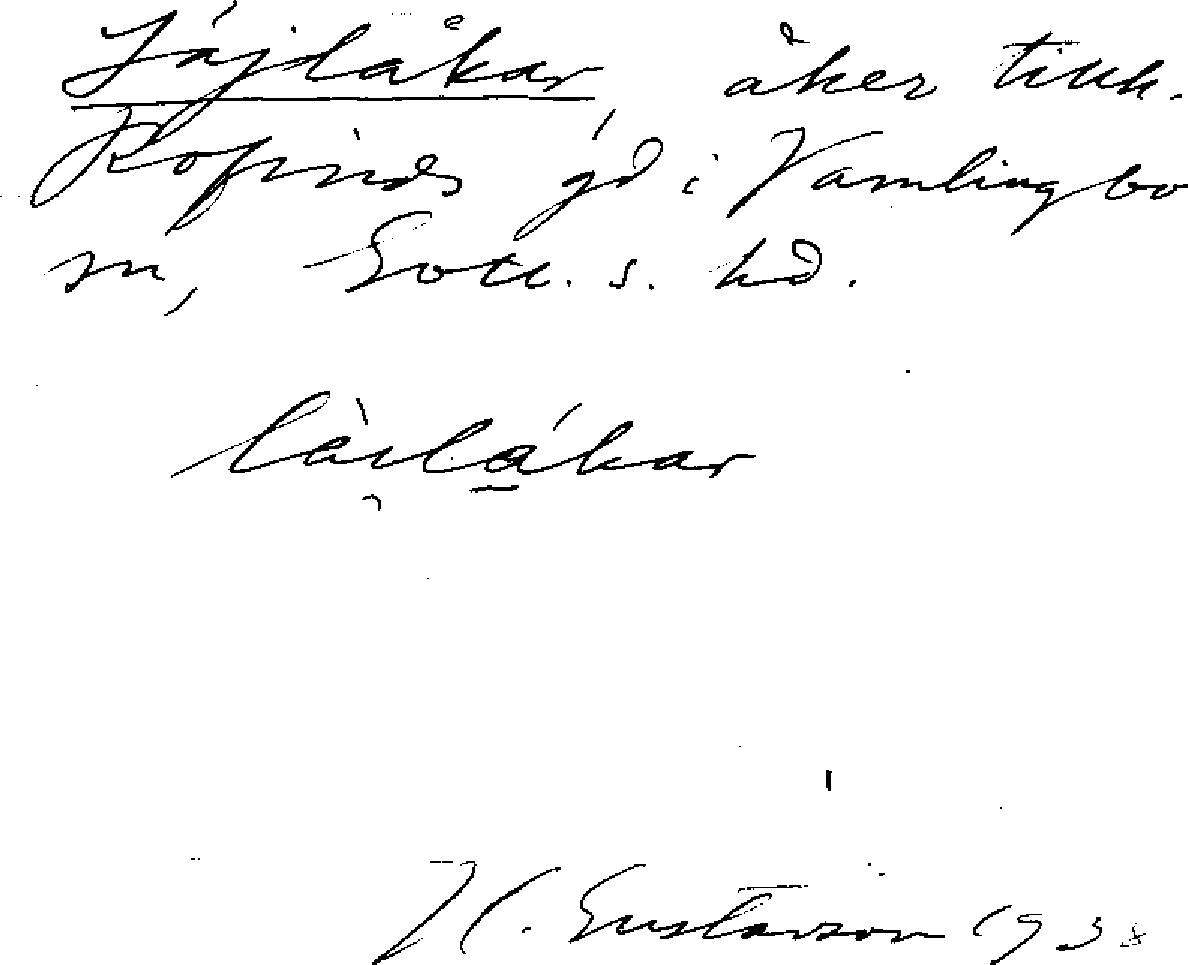 Lájlåkar, åker tillh.
Rofinds gd i Vamlingbo
sn, Gotl. s. hd.
làılákar
H. Gustavson 1938